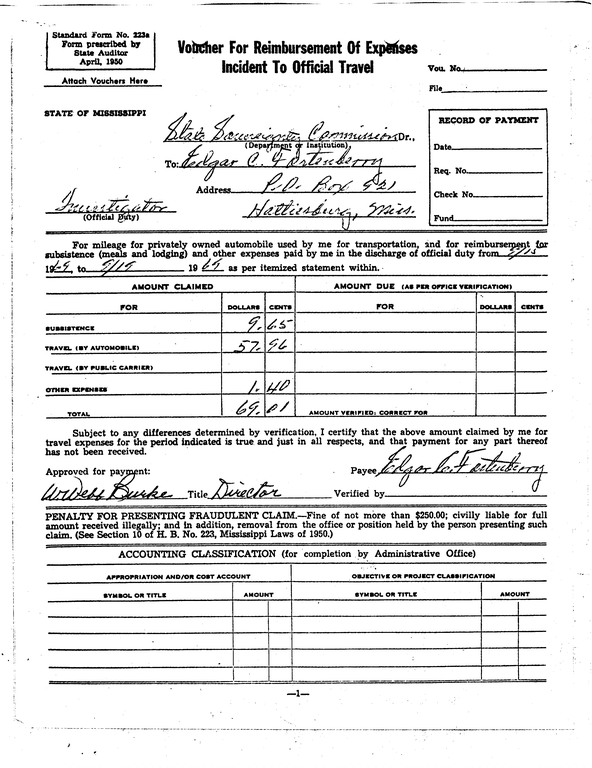 Standard Form No. 223a
Form prescribed by
State Auditor
April, 1950
Attach Vouchers Here
Voucher For Reimbursement Of Expenses
Incident To Official Travel
Vou. No.
File
STATE OF MISSISSIPPI
State Sovereignty Commission Dr.,
(Department or Institution),
To: Edgar C. Fortenberry
Address P.O. Box 921
Investigator Hattiesburg, Miss.
(Official Duty)
RECORD OF PAYMENT
Date
Req. No.
Check No.
Fund
For mileage for privately owned automobile used by me for transportation, and for reimbursement for
subsistence (meals and lodging) and other expenses paid by me in the discharge of official duty from
19 to 1969 as per itemized statement within.
AMOUNT CLAIMED AMOUNT DUE (AS PER OFFICE VERIFICATION)
FOR DOLLARS CENTS FOR DOLLARS CENTS
SUBSISTENCE 9.65
TRAVEL (BY AUTOMOBILE) 57.96
TRAVEL (BY PUBLIC CARRIER)
OTHER EXPENSES 1.40
TOTAL 69.01 AMOUNT VERIFIED: CORRECT FOR
Subject to any differences determined by verification, I certify that the above amount claimed by me for
travel expenses for the period indicated is true and just in all respects, and that payment for any part thereof
has not been received.
Approved for payment: Payee Edgar C. Fortenberry
W. Webb Burke Title Director Verified by
PENALTY FOR PRESENTING FRAUDULENT CLAIM.—Fine of not more than $250.00; civilly liable for full
amount received illegally; and in addition, removal from the office or position held by the person presenting such
claim. (See Section 10 of H. B. No. 223, Mississippi Laws of 1950.)
ACCOUNTING CLASSIFICATION (for completion by Administrative Office)
APPROPRIATION AND/OR COST ACCOUNT OBJECTIVE OR PROJECT CLASSIFICATION
SYMBOL OR TITLE AMOUNT SYMBOL OR TITLE AMOUNT
—1—